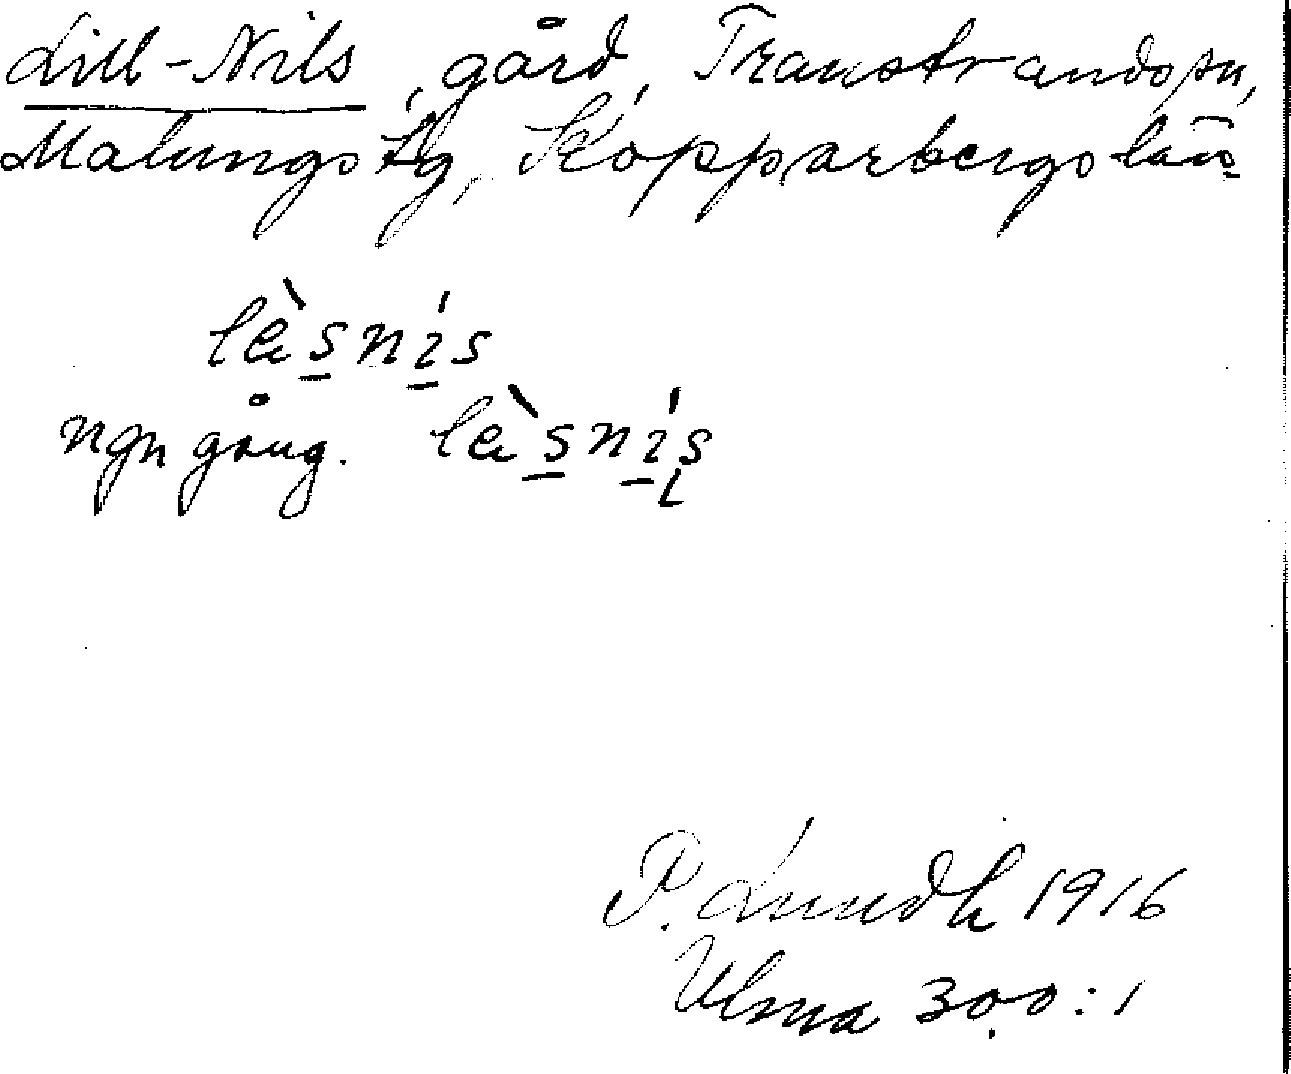 Lill-Nils, gård, Transtrands sn,
Malungs tg, Kopparbergs län
lèsnís
ngn gång. lèsnís
P. Lundh 1916
Ulma 300:1